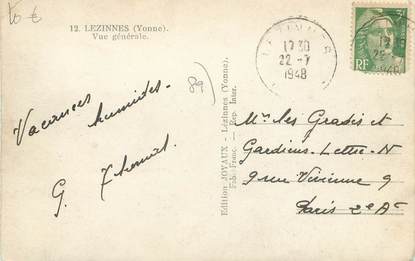 10 €
12. LEZINNES (Yonne).
Vue générale.
17 30
22 - 7
1948
RF
89
Vacances
humides.
G. Thomas
Edition JOYAUX - Lézinnes (Yonne).
Fab. Franc. — Rep. Inter.
Mrs les Gradés et
Gardiens
9 rue Vivienne 9
Paris 2e Ar